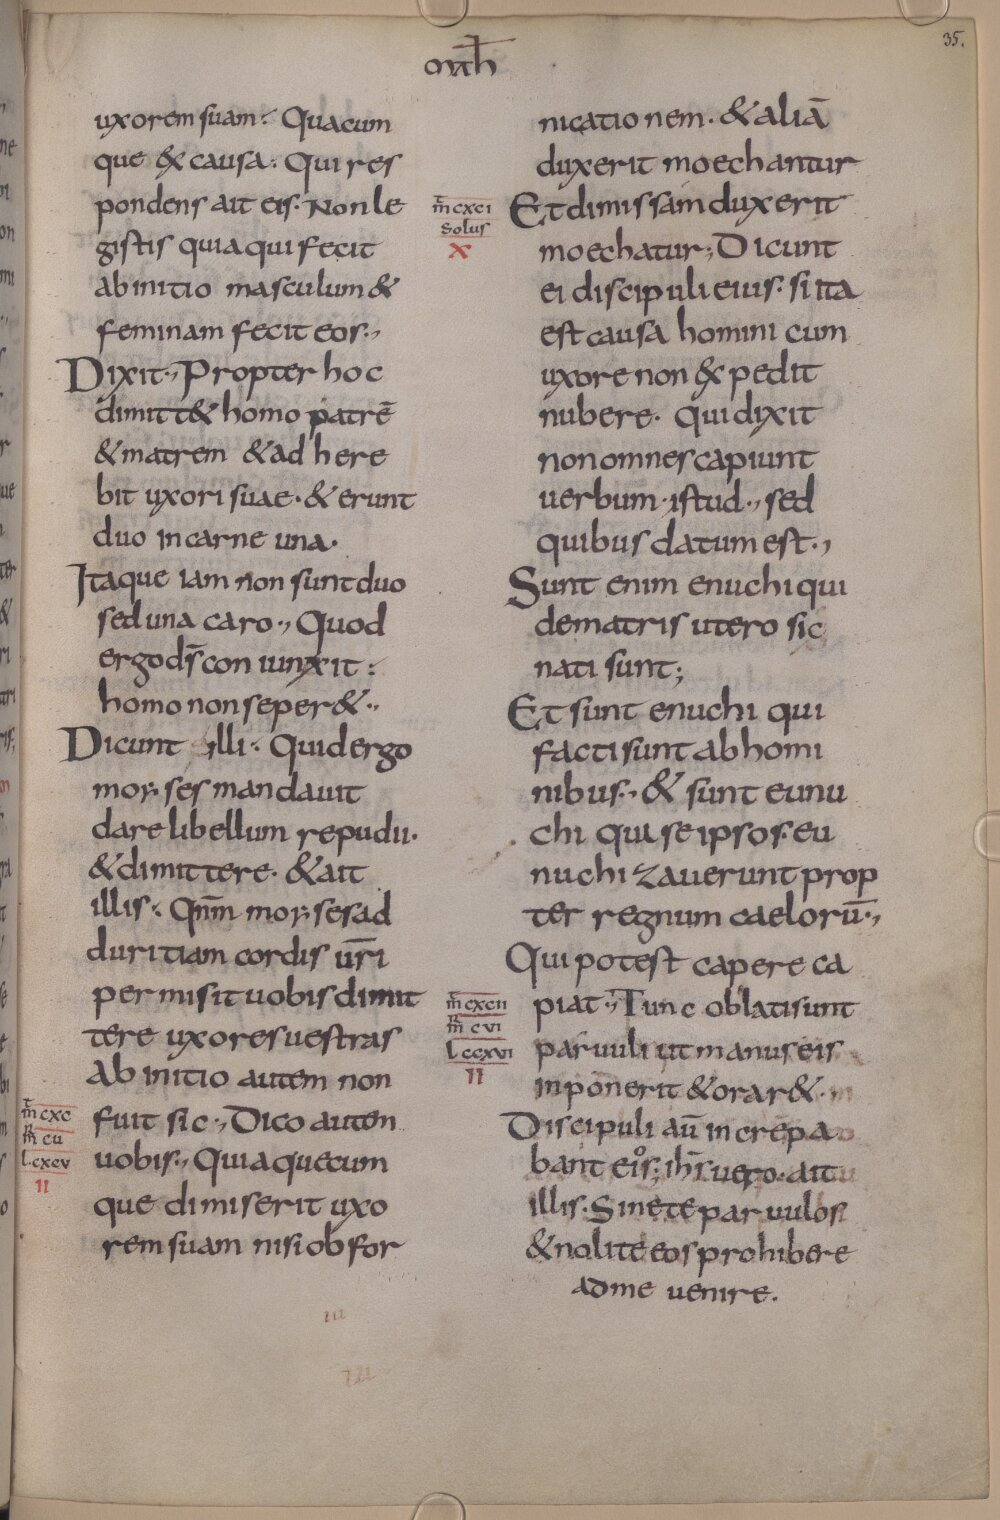 35.
math
uxorem suam: Quacum
que & causa: Qui res
pondens ait eis. Non le
gistis quia qui fecit
ab initio masculum &
feminam fecit eos.,
Dixit., Propter hoc
dimitt& homo patrē
& matrem & adhere
bit uxori suae. & erunt
duo in carne una.
Itaque iam non sunt duo
sed una caro., Quod
ergo ds̄ coniunxit:
homo non seper&.,
Dicunt illi: Quid ergo
moyses mandauit
dare libellum repudii.
& dimittere. & ait
illis: Qnm̄ moyses ad
duritiam cordis ur̄i
permisit uobis dimit
tere uxores uestras
Ab initio autem non
m̄ cxc
fuit sic., Dico autem
m̄ cu
l. cxcv
uobis., Quia quecum
II
que dimiserit uxo
rem suam nisi ob for
nicationem. & aliā
duxerit moechantur
m̄ cxci
Et dimissam duxerit
solus
X
moechatur; Dicunt
ei discipuli eius. si ita
est causa homini cum
uxore non &pedit
nubere. Qui dixit
non omnes capiunt
uerbum istud., sed
quibus datum est.,
Sunt enim enuchi qui
de matris utero sic
nati sunt;
Et sunt enuchi qui
facti sunt ab homi
nibus., & sunt eunu
chi qui se ipsos eu
nuchizauerunt prop
ter regnum caelorū.,
Qui potest capere ca
m̄ cxcii
piat., Tunc oblati sunt
m̄ cvi
l ccxvi
paruuli ut manus eis
II
inponerit & orar&.
Discipuli aū increpa
bant eos; ihs̄ uero. ait
illis. Sinete paruulos
& nolite eos prohibere
ad me uenire.
III